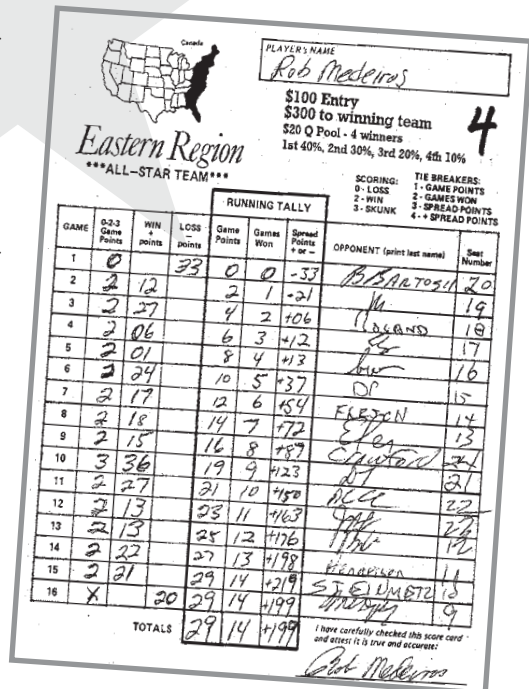 Canada
PLAYER'S NAME
Rob Medeiros
$100 Entry
$300 to winning team
$20 Q Pool - 4 winners
1st 40%, 2nd 30%, 3rd 20%, 4th 10%
4
Eastern Region
***ALL-STAR TEAM***
SCORING:
0 - LOSS
2 - WIN
3 - SKUNK
TIE BREAKERS:
1 - GAME POINTS
2 - GAMES WON
3 - SPREAD POINTS
4 - + SPREAD POINTS
RUNNING TALLY
GAME 0-2-3 Game Points WIN + points LOSS - points Game Points Games Won Spread Points + or - OPPONENT (print last name) Seat Number
1 0 33 0 0 -33 BARTOSH 20
2 2 12 2 1 -21 19
3 2 27 4 2 +06 ROLAND 18
4 2 06 6 3 +12 17
5 2 01 8 4 +13 16
6 2 24 10 5 +37 15
7 2 17 12 6 +54 14
8 2 18 14 7 +72 13
9 2 15 16 8 +87 Crawford 24
10 3 36 19 9 +123 21
11 2 27 21 10 +150 22
12 2 13 23 11 +163
13 2 13 25 12 +176 12
14 2 22 27 13 +198 11
15 2 21 29 14 +219 STEINMETZ 10
16 X 20 29 14 +199 9
TOTALS 29 14 +199
I have carefully checked this score card
and attest it is true and accurate:
Rob Medeiros